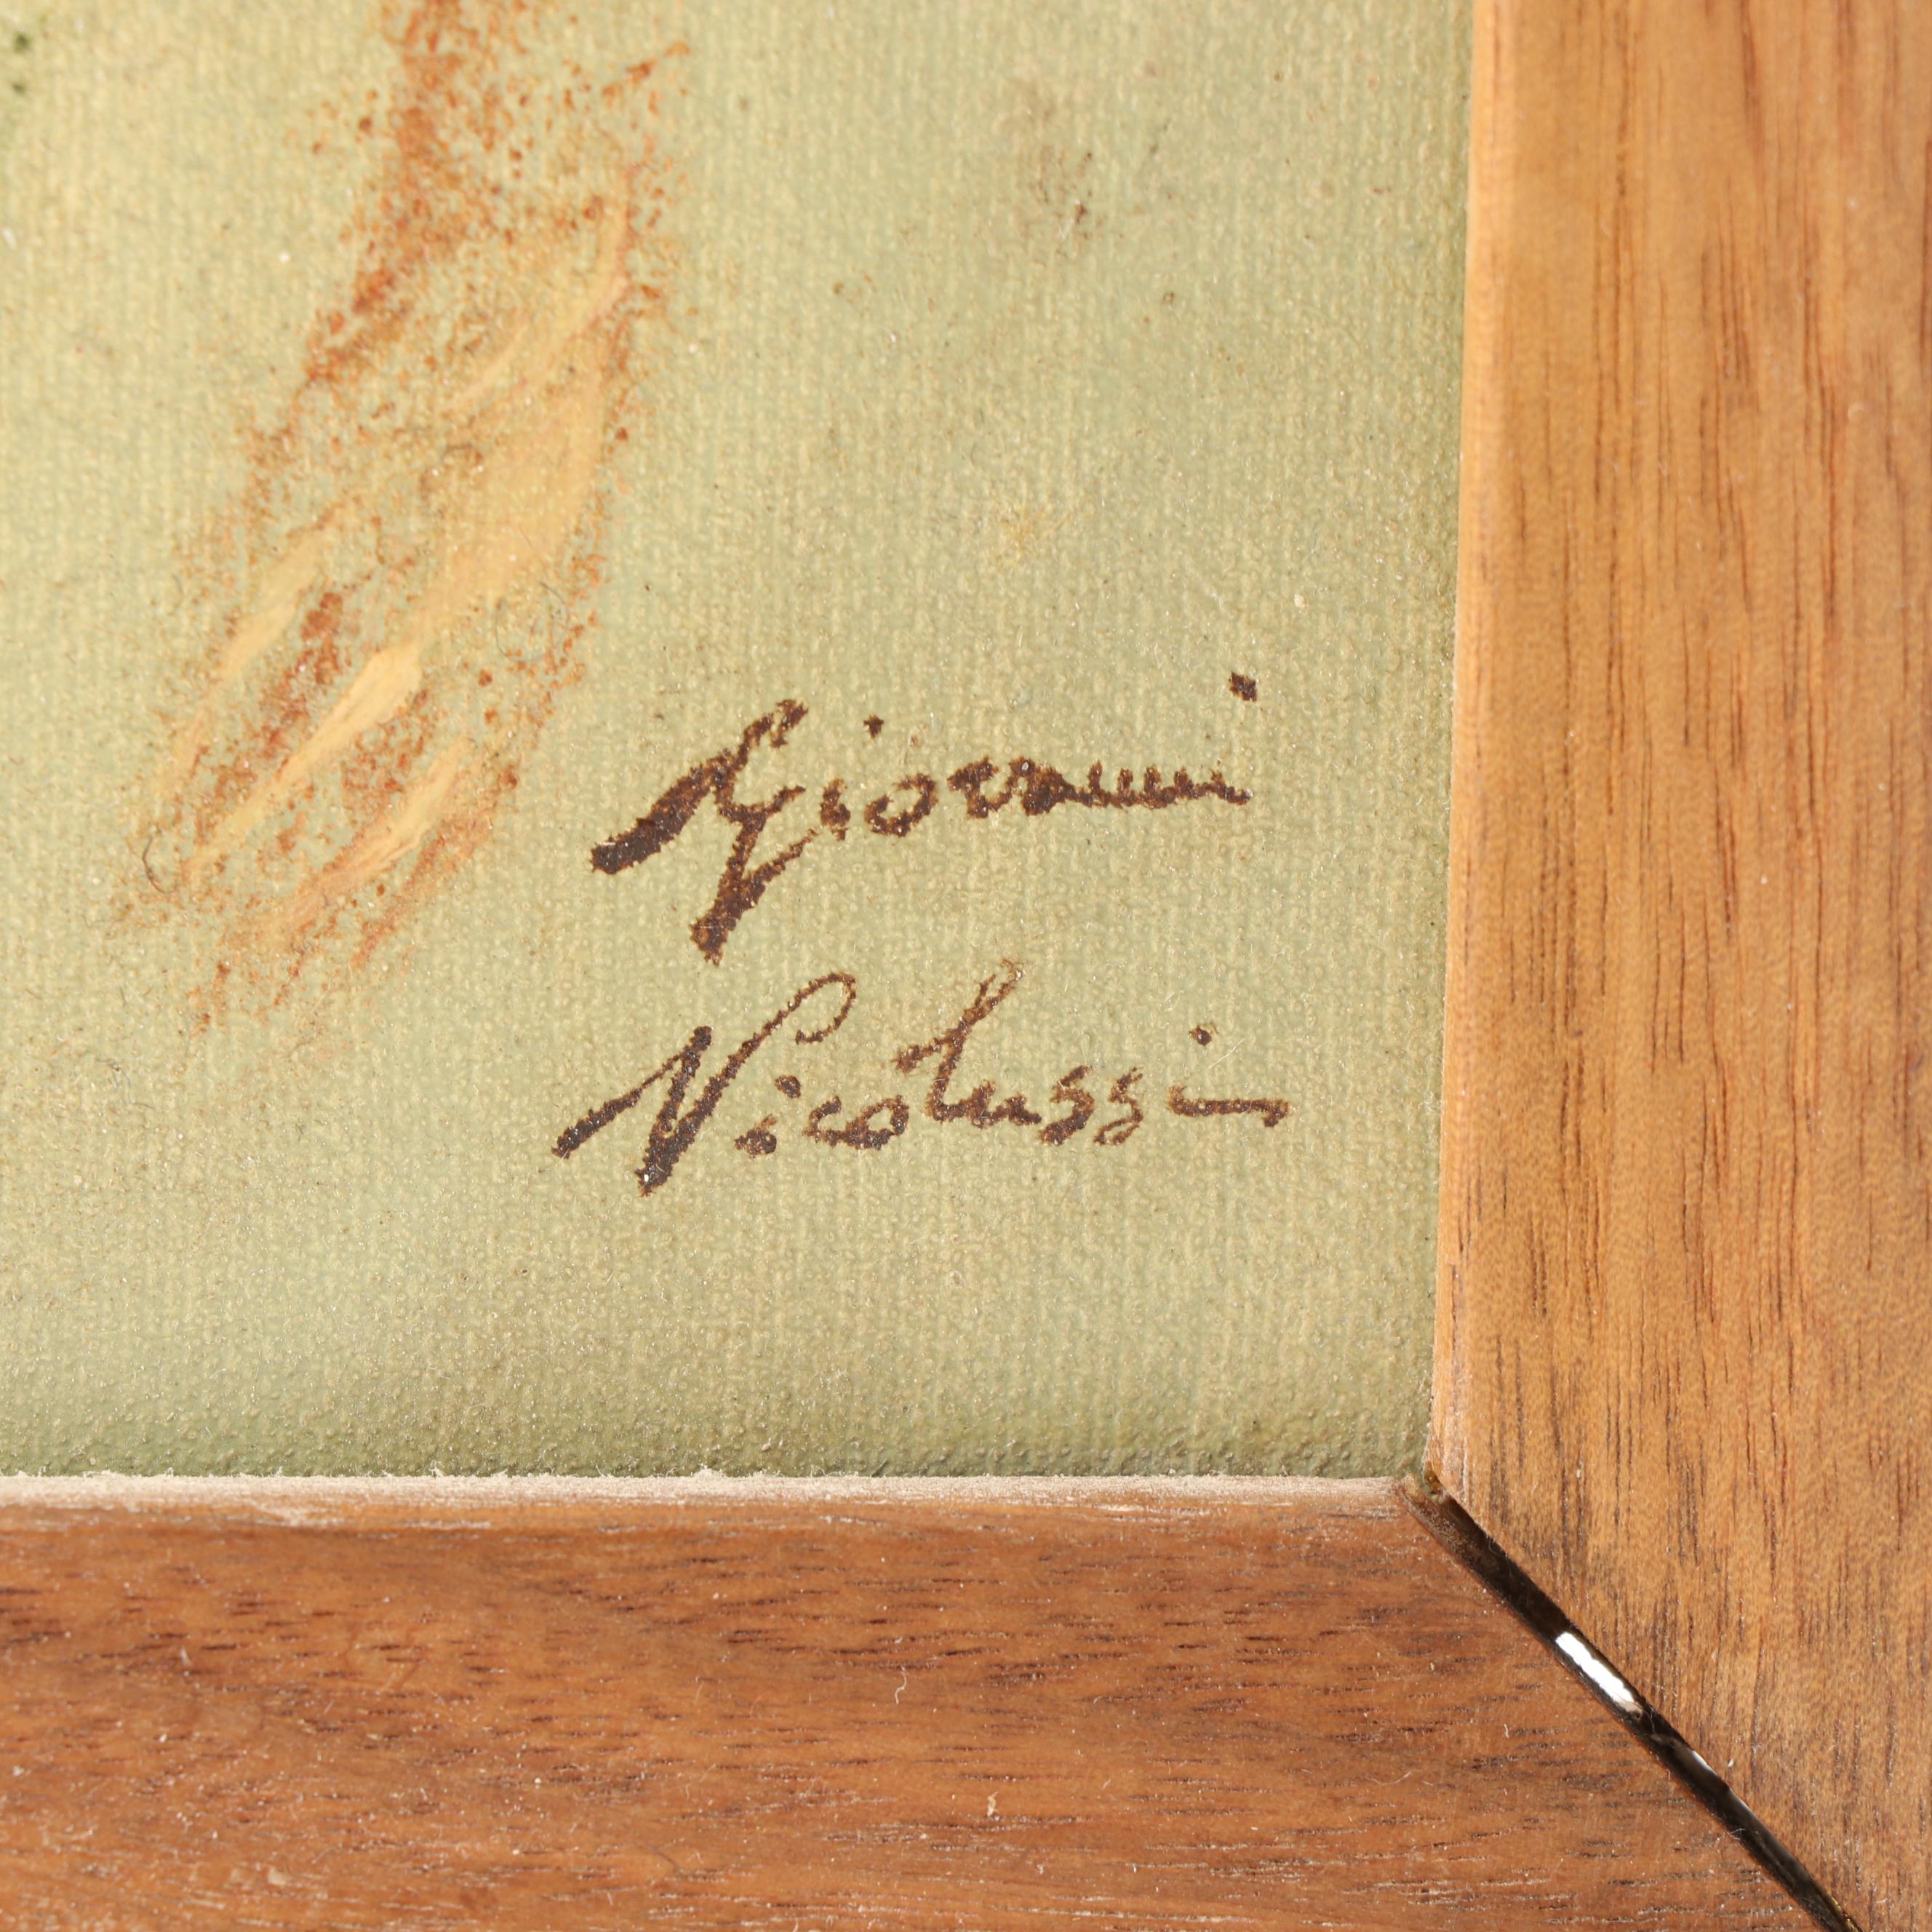 Giovanni
Nicolussi